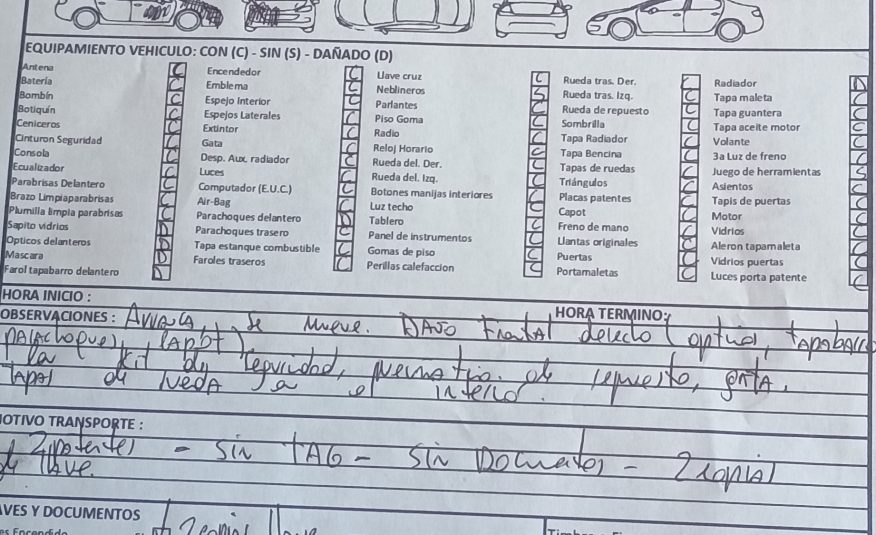 EQUIPAMIENTO VEHICULO: CON (C) - SIN (S) - DAÑADO (D)
Antena
Batería
Bombín
Botiquín
Ceniceros
Cinturon Seguridad
Consola
Ecualizador
Parabrisas Delantero
Brazo Limpiaparabrisas
Plumilla limpia parabrisas
Sapito vidrios
Opticos delanteros
Mascara
Farol tapabarro delantero
Encendedor
Emblema
Espejo Interior
Espejos Laterales
Extintor
Gata
Desp. Aux. radiador
Luces
Computador (E.U.C.)
Air-Bag
Parachoques delantero
Parachoques trasero
Tapa estanque combustible
Faroles traseros
Llave cruz
Neblineros
Parlantes
Piso Goma
Radio
Reloj Horario
Rueda del. Der.
Rueda del. Izq.
Botones manijas interiores
Luz techo
Tablero
Panel de instrumentos
Gomas de piso
Perillas calefaccion
Rueda tras. Der.
Rueda tras. Izq.
Rueda de repuesto
Sombrilla
Tapa Radiador
Tapa Bencina
Tapas de ruedas
Triángulos
Placas patentes
Capot
Freno de mano
Llantas originales
Puertas
Portamaletas
Radiador
Tapa maleta
Tapa guantera
Tapa aceite motor
Volante
3a Luz de freno
Juego de herramientas
Asientos
Tapis de puertas
Motor
Vidrios
Aleron tapamaleta
Vidrios puertas
Luces porta patente
HORA INICIO :
HORA TERMINO:
OBSERVACIONES : se mueve. DAÑO Frontal derecho (optico, tapabarro
la kit de seguridad, neumatico de repuesto, gata,
tapas de rueda va a el interior.
OTIVO TRANSPORTE :
2 patentes - sin TAG - sin Documentos - 2 copias
de llave.
AVES Y DOCUMENTOS
2 copias llave